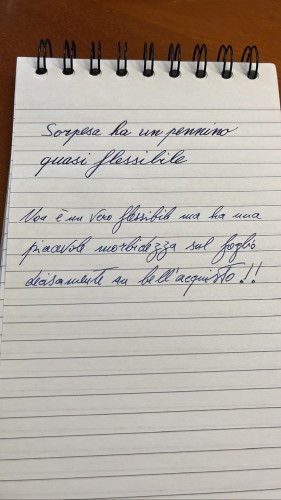 Sorpresa ha un pennino
quasi flessibile
Non è un vero flessibile ma ha una
piacevole morbidezza sul foglio
decisamente un bell'acquisto!!